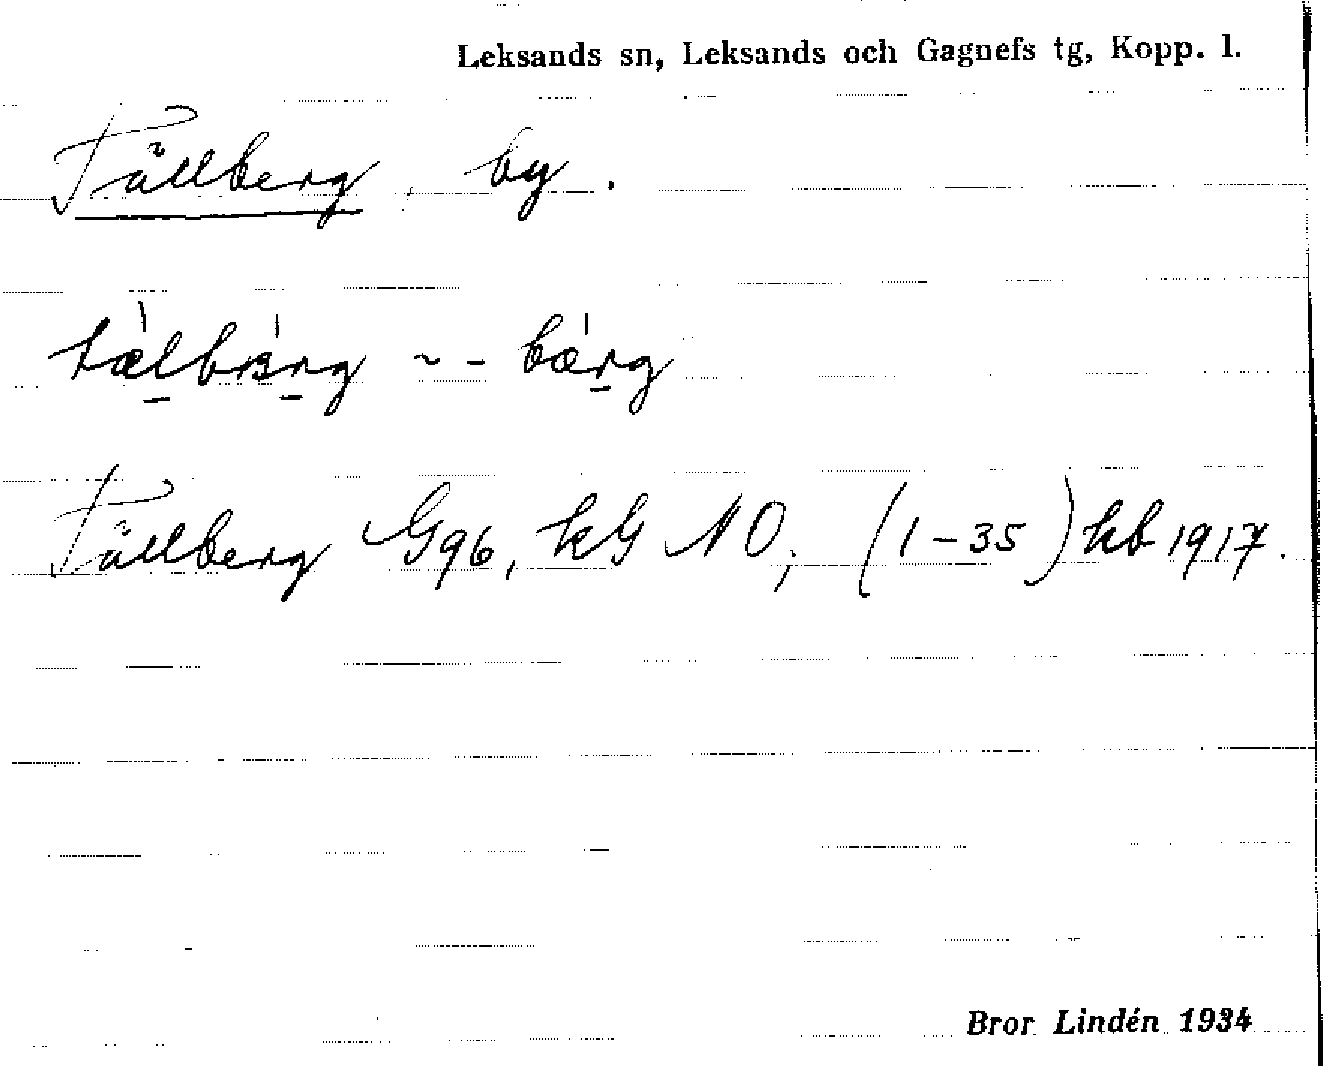 Leksands sn, Leksands och Gagnefs tg, Kopp. l.
Tällberg, by.
tæ̀lbærg ~ - bærg
Tällberg G96, kG NO; (1-35) kb 1917.
Bror Lindén 1934